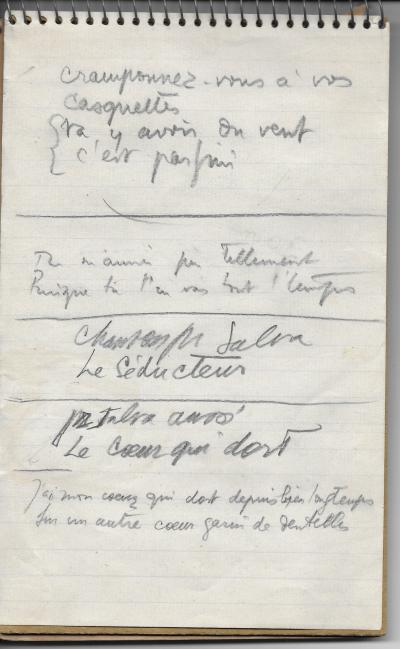 cramponnez-vous à vos
casquettes
va y avoir du vent
c'est pas fini
Tu m'aimes pas tellement
Puisque tu t'en vas tout l'temps
Salva
Le Séducteur
Salva aussi
Le cœur qui dort
J'ai mon cœur qui dort depuis bien longtemps
Sur un autre cœur garni de dentelles